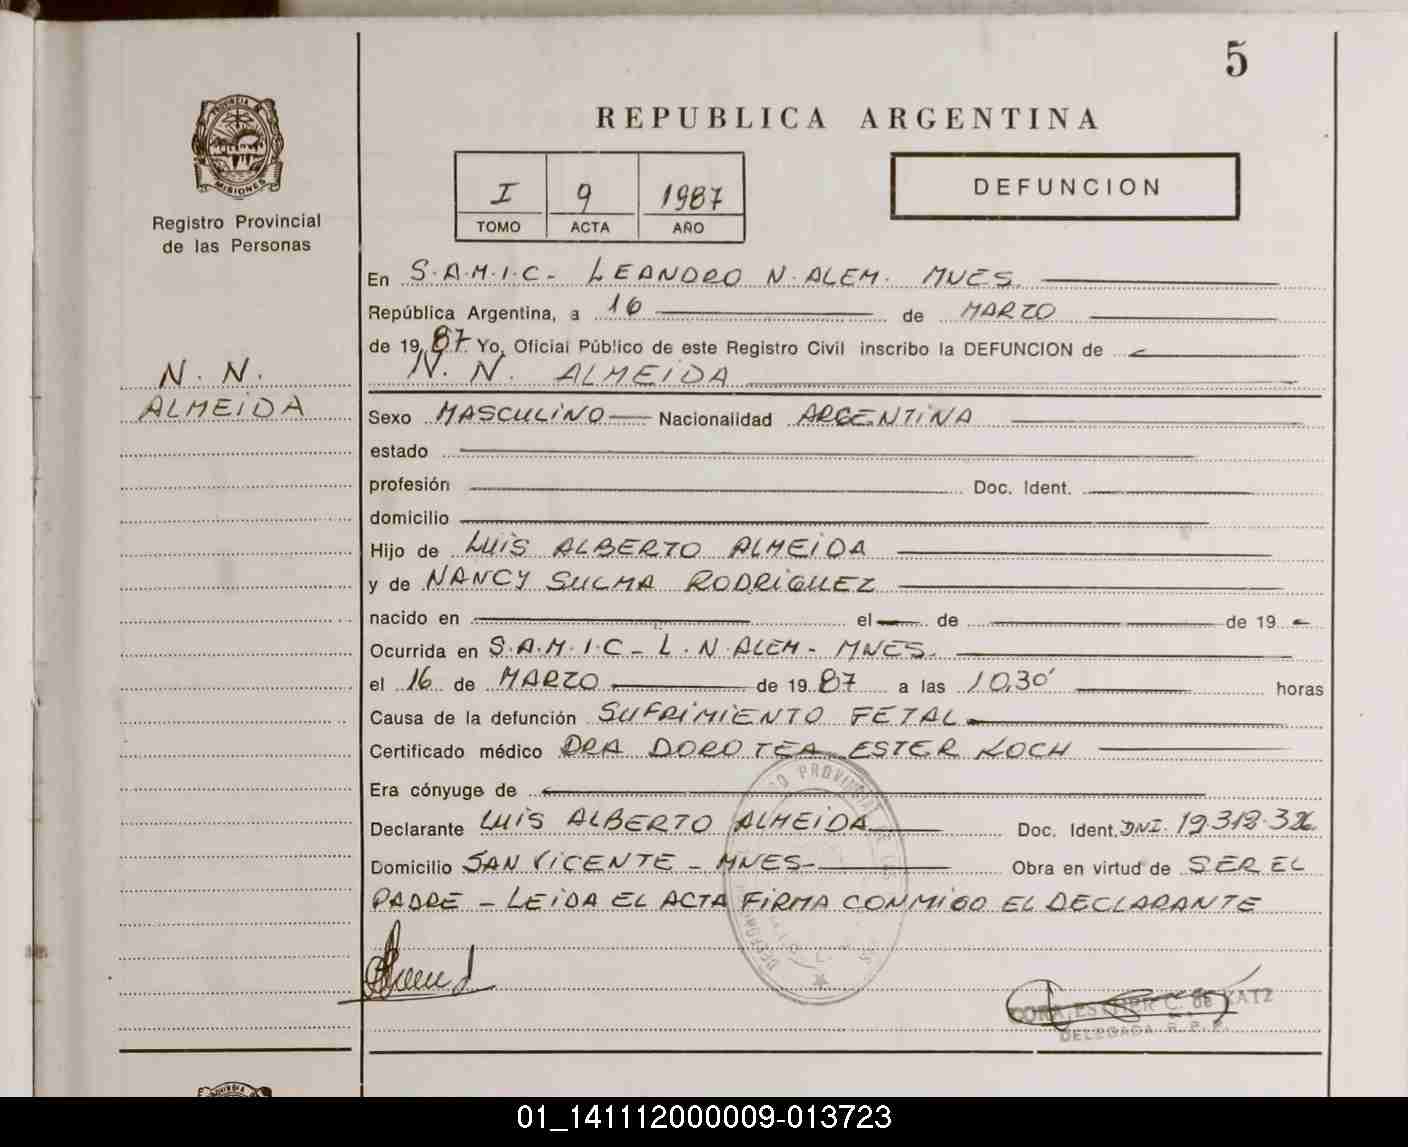 5
REPUBLICA ARGENTINA
PROVINCIA DE
MISIONES
Registro Provincial
de las Personas
I 9 1987
TOMO ACTA AÑO
DEFUNCION
En S.A.M.I.C- LEANDRO N. ALEM. MNES.
República Argentina, a 16 de MARZO
de 1987 Yo, Oficial Público de este Registro Civil inscribo la DEFUNCION de
N. N. ALMEIDA
N. N.
ALMEIDA
Sexo MASCULINO Nacionalidad ARGENTINA
estado
profesión Doc. Ident.
domicilio
Hijo de LUIS ALBERTO ALMEIDA
y de NANCY SULMA RODRIGUEZ
nacido en el de de 19
Ocurrida en S.A.M.I.C- L.N.ALEM- MNES.
el 16 de MARZO de 1987 a las 10,30' horas
Causa de la defunción SUFRIMIENTO FETAL
Certificado médico DRA DOROTEA ESTER KOCH
Era cónyuge de
Declarante LUIS ALBERTO ALMEIDA Doc. Ident. DNI.
Domicilio SAN VICENTE - MNES- Obra en virtud de SER EL
PADRE - LEIDA EL ACTA FIRMA CONMIGO EL DECLARANTE
ESTHER C. de KATZ
DELEGADA R.P.P.
01_141112000009-013723